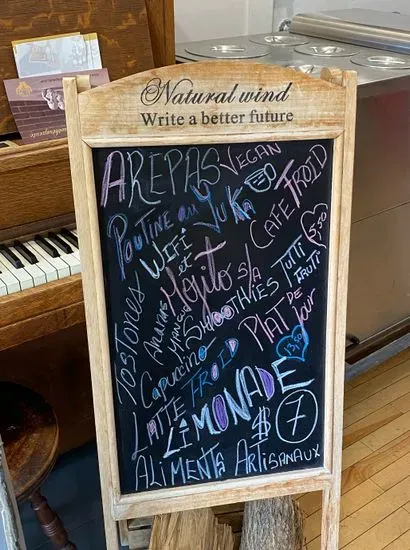 Natural wind
Write a better future
AREPAS VEGAN
POUTINE au YUKA
CAFE FROID
5,50
WIFI et
MOJITO S/A
TUTTI FRUTI
TOSTONES
SMOOTHIES
PLAT DE JOUR
13,50
CAPUCINO
LATTE FROID
LIMONADE
$7
ALIMENTS ARTISANAUX